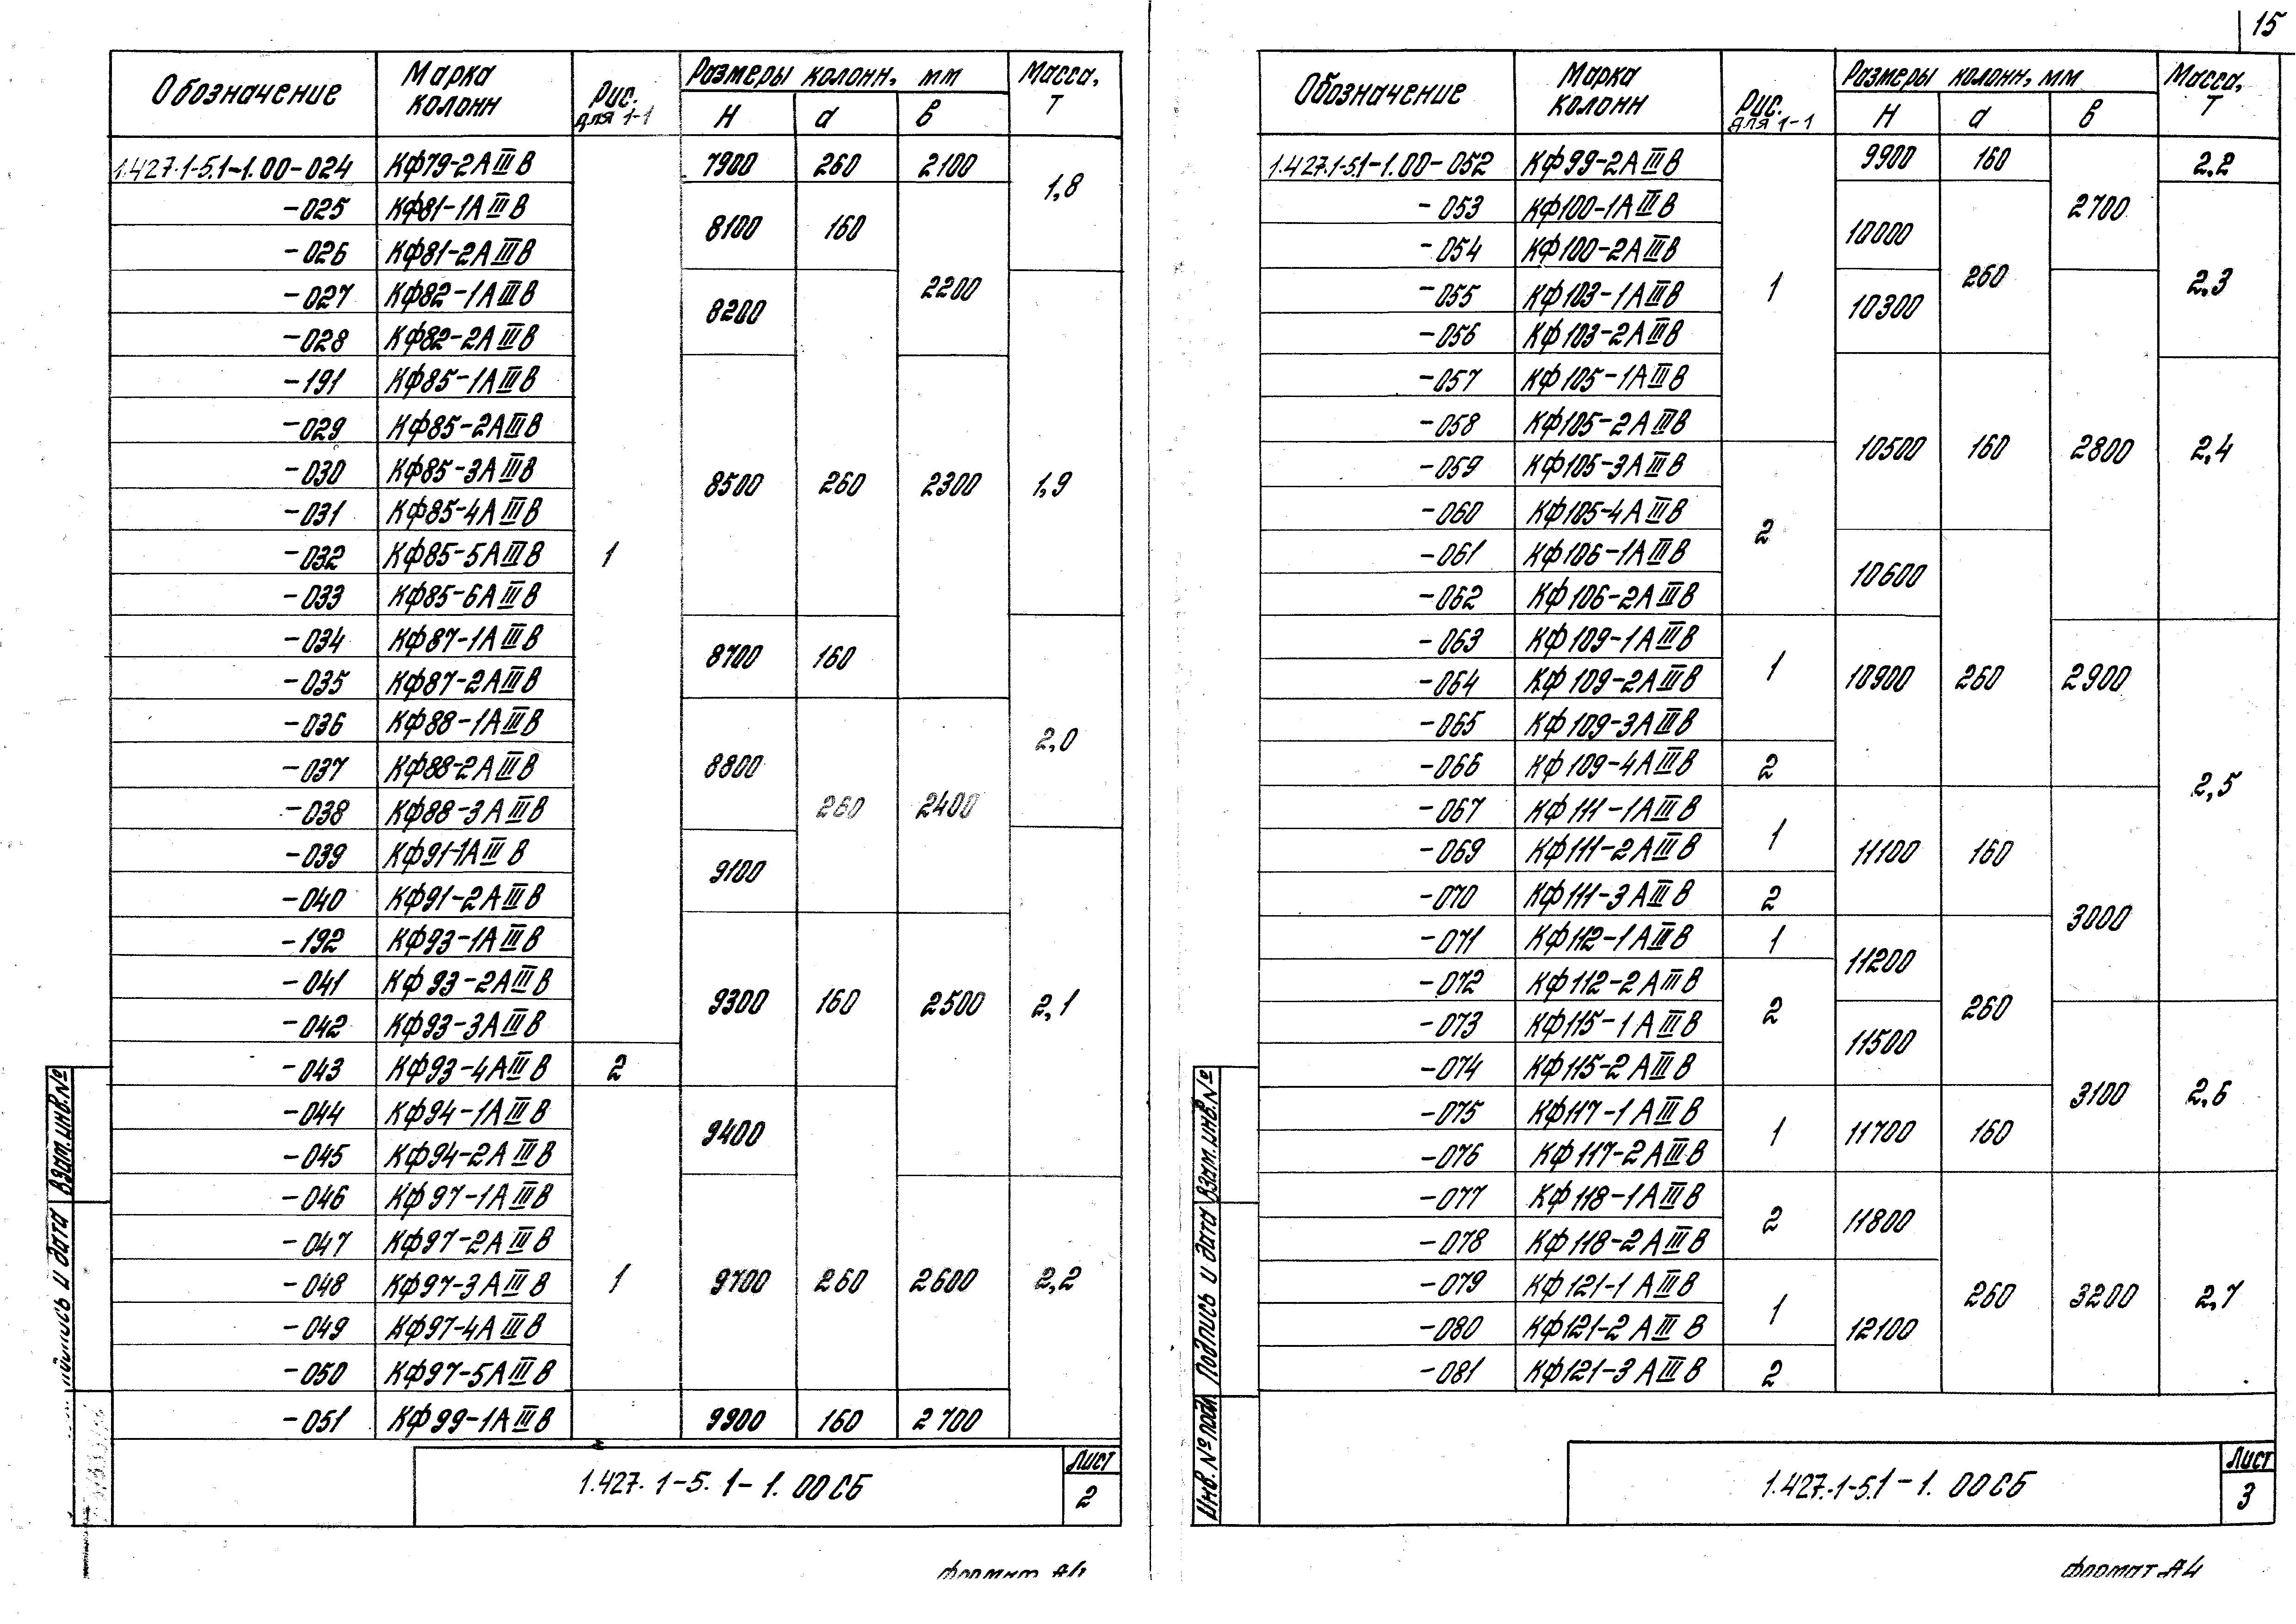 15
Обозначение Марка колонн Рис. для 1-1 Размеры колонн, мм Масса, т
H d в
1.427.1-5.1-1.00-024 КФ79-2АIIIВ 1 7900 260 2100 1,8
-025 КФ81-1АIIIВ 8100 160 2200
-026 КФ81-2АIIIВ
-027 КФ82-1АIIIВ 8200 260 1,9
-028 КФ82-2АIIIВ
-191 КФ85-1АIIIВ 8500 2300
-029 КФ85-2АIIIВ
-030 КФ85-3АIIIВ
-031 КФ85-4АIIIВ
-032 КФ85-5АIIIВ
-033 КФ85-6АIIIВ
-034 КФ87-1АIIIВ 8700 160 2,0
-035 КФ87-2АIIIВ
-036 КФ88-1АIIIВ 8800 260 2400
-037 КФ88-2АIIIВ
-038 КФ88-3АIIIВ
-039 КФ91-1АIIIВ 9100 2,1
-040 КФ91-2АIIIВ
-192 КФ93-1АIIIВ 9300 160 2500
-041 КФ93-2АIIIВ
-042 КФ93-3АIIIВ
-043 КФ93-4АIIIВ 2
-044 КФ94-1АIIIВ 1 9400 260
-045 КФ94-2АIIIВ
-046 КФ97-1АIIIВ 9700 2600 2,2
-047 КФ97-2АIIIВ
-048 КФ97-3АIIIВ
-049 КФ97-4АIIIВ
-050 КФ97-5АIIIВ
-051 КФ99-1АIIIВ 9900 160 2700
Взам.инв.№
Подпись и дата
1.427.1-5.1-1.00СБ
Лист
2
Формат А4
Обозначение Марка колонн Рис. для 1-1 Размеры колонн, мм Масса, т
H d в
1.427.1-5.1-1.00-052 КФ99-2АIIIВ 1 9900 160 2700 2,2
-053 КФ100-1АIIIВ 10000 260 2,3
-054 КФ100-2АIIIВ
-055 КФ103-1АIIIВ 10300 2800
-056 КФ103-2АIIIВ
-057 КФ105-1АIIIВ 10500 160 2,4
-058 КФ105-2АIIIВ
-059 КФ105-3АIIIВ 2
-060 КФ105-4АIIIВ
-061 КФ106-1АIIIВ 10600 260
-062 КФ106-2АIIIВ
-063 КФ109-1АIIIВ 1 10900 2900 2,5
-064 КФ109-2АIIIВ
-065 КФ109-3АIIIВ
-066 КФ109-4АIIIВ 2
-067 КФ111-1АIIIВ 1 11100 160 3000
-069 КФ111-2АIIIВ
-070 КФ111-3АIIIВ 2
-071 КФ112-1АIIIВ 1 11200 260
-072 КФ112-2АIIIВ 2
-073 КФ115-1АIIIВ 11500 3100 2,6
-074 КФ115-2АIIIВ
-075 КФ117-1АIIIВ 1 11700 160
-076 КФ117-2АIIIВ
-077 КФ118-1АIIIВ 2 11800 260 3200 2,7
-078 КФ118-2АIIIВ
-079 КФ121-1АIIIВ 1 12100
-080 КФ121-2АIIIВ
-081 КФ121-3АIIIВ 2
Взам.инв.№
Подпись и дата
Инв.№подл
1.427.1-5.1-1.00СБ
Лист
3
Формат А4